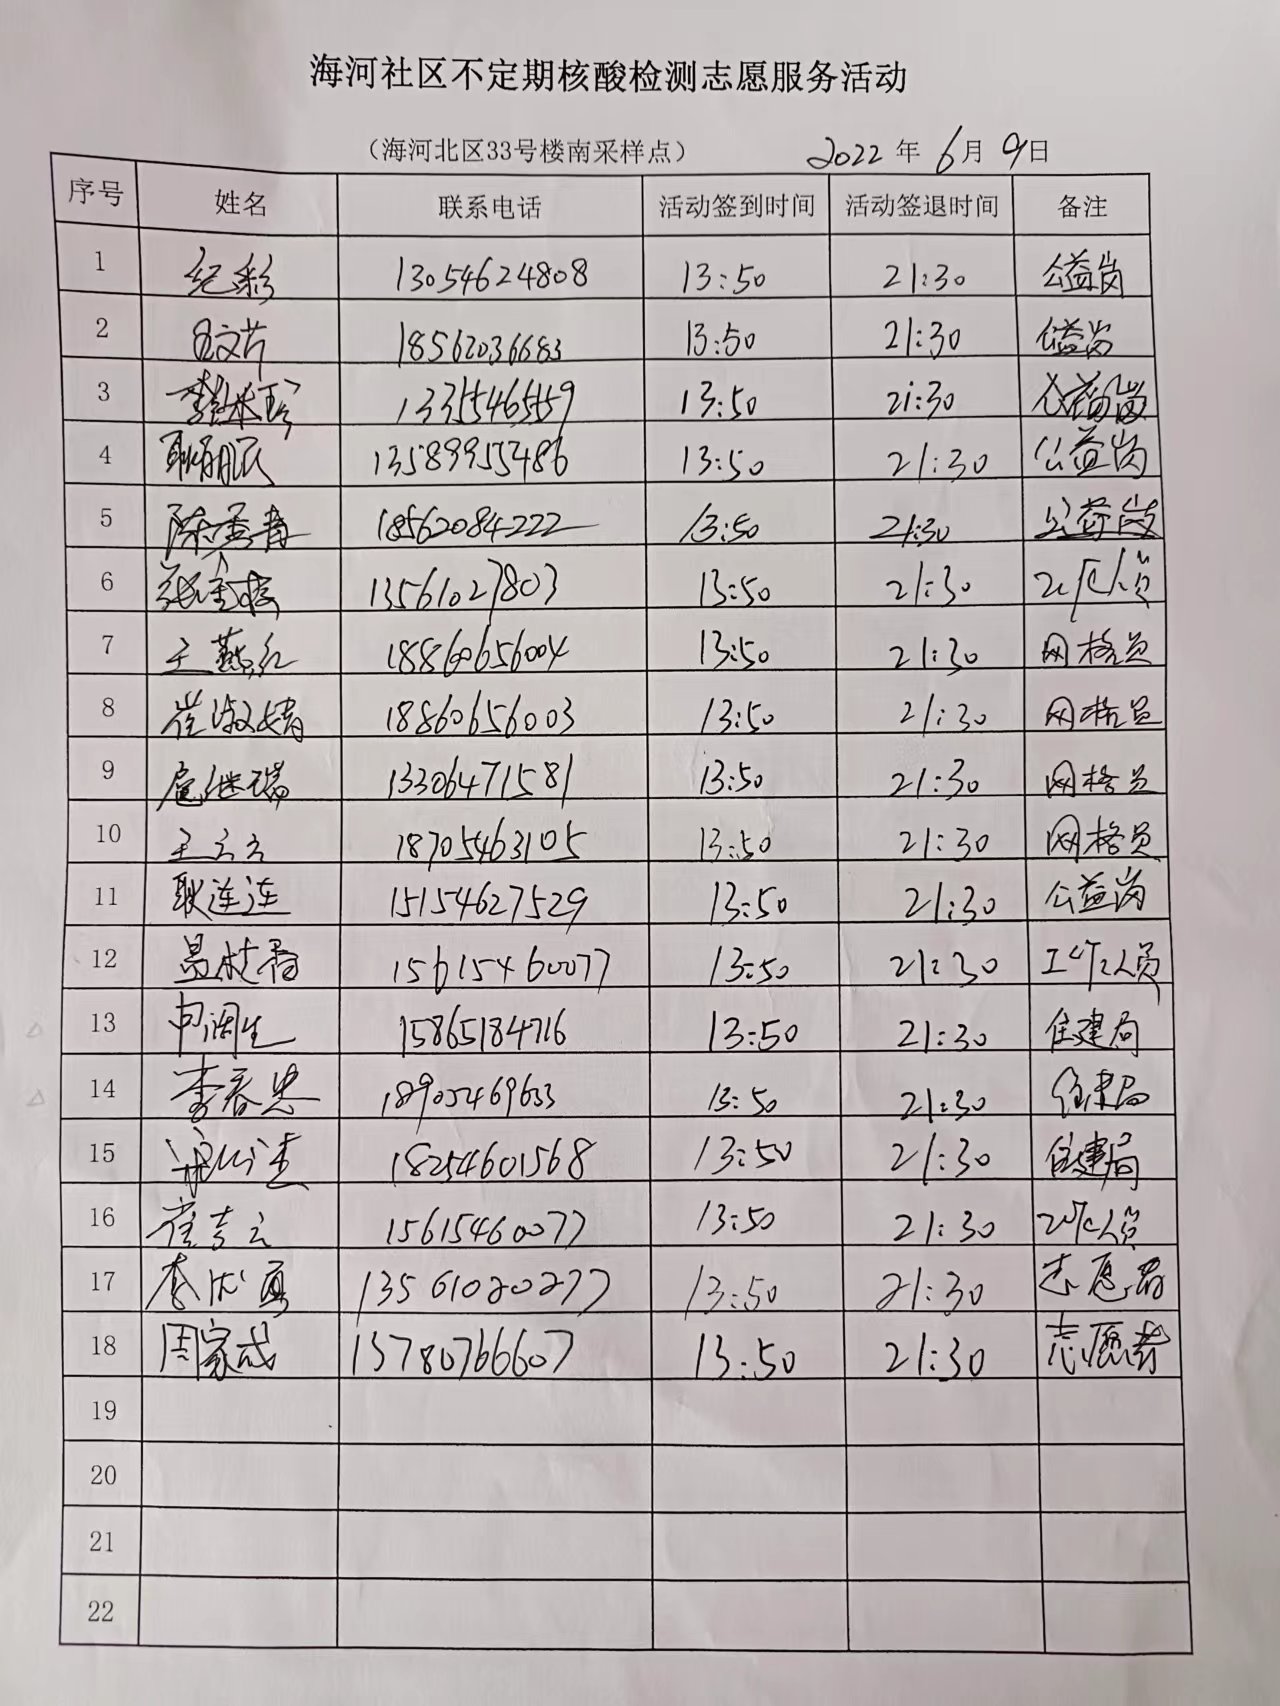 海河社区不定期核酸检测志愿服务活动
（海河北区33号楼南采样点） 2022 年 6月 9日
序号 姓名 联系电话 活动签到时间 活动签退时间 备注
1 纪彩 13054624808 13:50 21:30 公益岗
2 文芹 18562036683 13:50 21:30 公益岗
3 13355465559 13:50 21:30 公益岗
4 耿 13589955486 13:50 21:30 公益岗
5 陈秀青 18562084222 13:50 21:30 公益岗
6 张 13561027803 13:50 21:30 工作人员
7 王燕红 18860656004 13:50 21:30 网格员
8 崔淑婧 18860656003 13:50 21:30 网格员
9 扈继 13306471581 13:50 21:30 网格员
10 王云云 18705463105 13:50 21:30 网格员
11 耿连连 15154627529 13:50 21:30 公益岗
12 15615460077 13:50 21:30 工作人员
13 申润生 15865184716 13:50 21:30 住建局
14 李春忠 13:50 21:30 住建局
15 18254601568 13:50 21:30 住建局
16 崔吉云 15615460077 13:50 21:30 工作人员
17 李 13561020277 13:50 21:30 志愿者
18 周家成 13780766607 13:50 21:30 志愿者
19
20
21
22